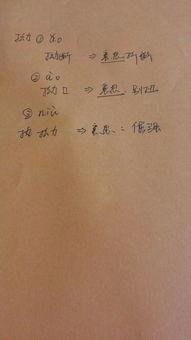 拗 ① ǎo
拗断 ⇒ 意思:折断
② ào
拗口 ⇒ 意思:别扭
③ niù
执拗 ⇒ 意思:倔强